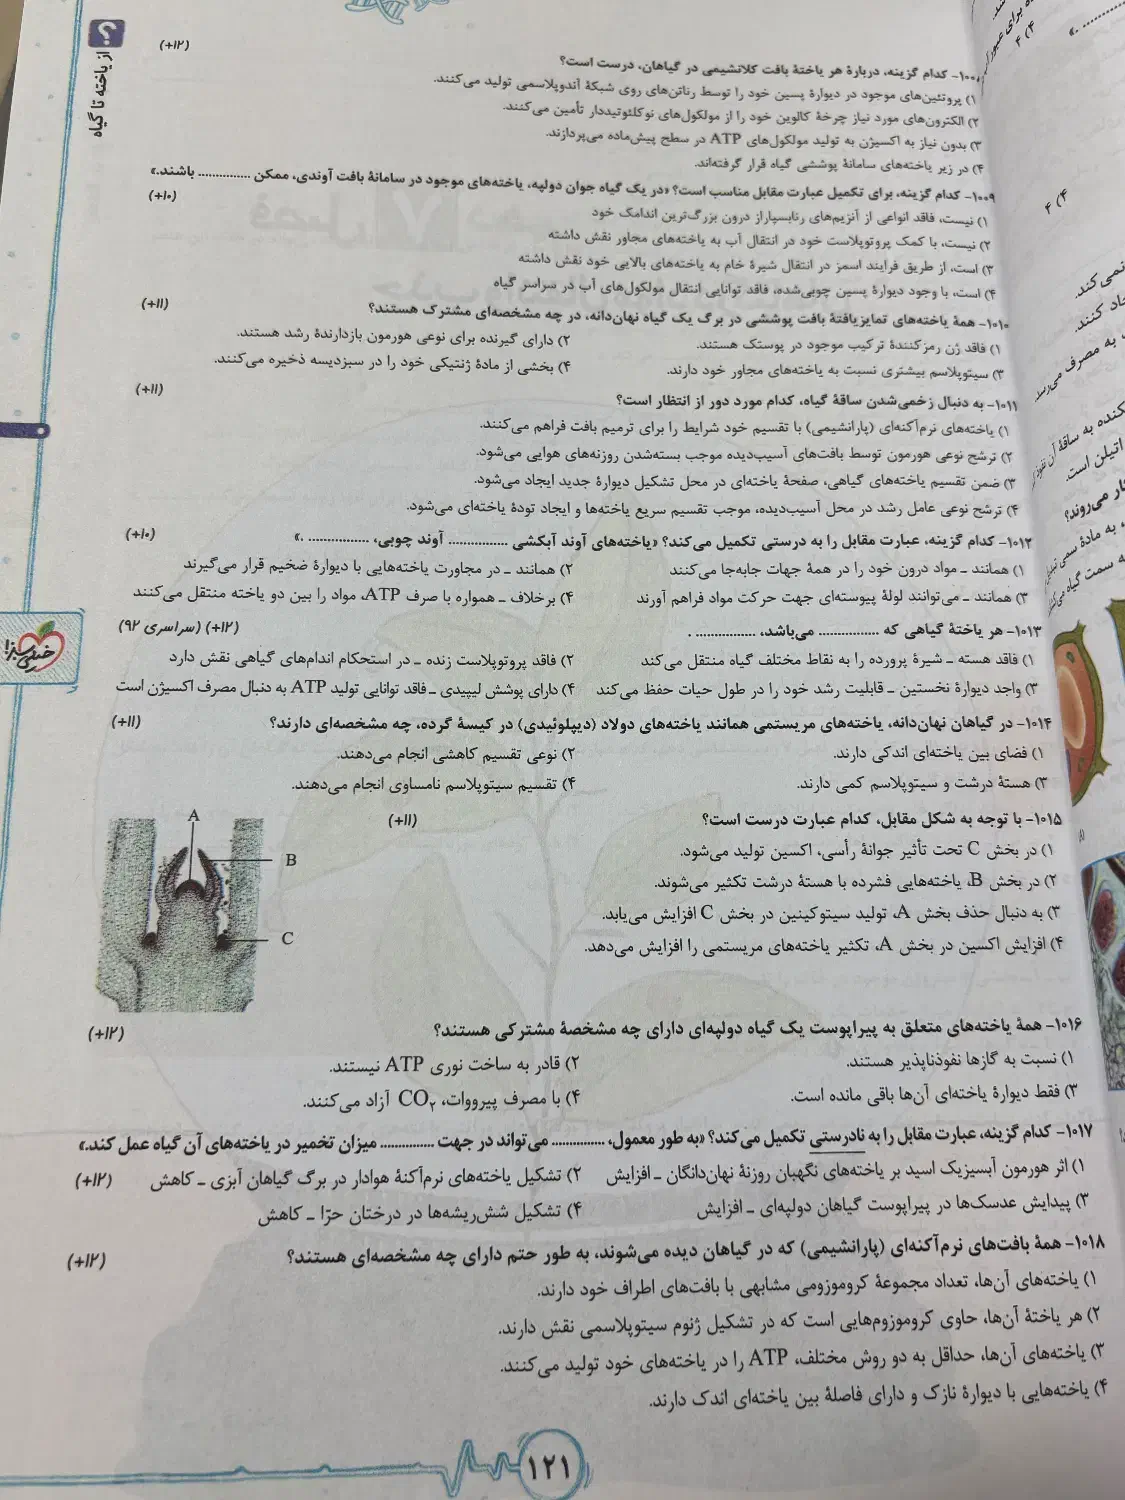 از یاخته تا گیاه
۱۰۰۸- کدام گزینه، دربارهٔ هر یاختهٔ بافت کلانشیمی در گیاهان، درست است؟ (۱۲+)
۱) پروتئین‌های موجود در دیوارهٔ پسین خود را توسط رناتن‌های روی شبکهٔ آندوپلاسمی تولید می‌کنند.
۲) الکترون‌های مورد نیاز چرخهٔ کالوین خود را از مولکول‌های نوکلئوتیددار تأمین می‌کنند.
۳) بدون نیاز به اکسیژن به تولید مولکول‌های ATP در سطح پیش‌ماده می‌پردازند.
۴) در زیر یاخته‌های سامانهٔ پوششی گیاه قرار گرفته‌اند.
۱۰۰۹- کدام گزینه، برای تکمیل عبارت مقابل مناسب است؟ «در یک گیاه جوان دولپه، یاخته‌های موجود در سامانهٔ بافت آوندی، ممکن .............. باشند.» (۱۰+)
۱) نیست، فاقد انواعی از آنزیم‌های رنابسپاراز درون بزرگ‌ترین اندامک خود
۲) نیست، با کمک پروتوپلاست خود در انتقال آب به یاخته‌های مجاور نقش داشته
۳) است، از طریق فرایند اسمز در انتقال شیرهٔ خام به یاخته‌های بالایی خود نقش داشته
۴) است، با وجود دیوارهٔ پسین چوبی‌شده، فاقد توانایی انتقال مولکول‌های آب در سراسر گیاه
۱۰۱۰- همهٔ یاخته‌های تمایزیافتهٔ بافت پوششی در برگ یک گیاه نهان‌دانه، در چه مشخصه‌ای مشترک هستند؟ (۱۱+)
۱) فاقد ژن رمزکنندهٔ ترکیب موجود در پوستک هستند. ۲) دارای گیرنده برای نوعی هورمون بازدارندهٔ رشد هستند.
۳) سیتوپلاسم بیشتری نسبت به یاخته‌های مجاور خود دارند. ۴) بخشی از مادهٔ ژنتیکی خود را در سبزدیسه ذخیره می‌کنند.
۱۰۱۱- به دنبال زخمی‌شدن ساقهٔ گیاه، کدام مورد دور از انتظار است؟ (۱۱+)
۱) یاخته‌های نرم‌آکنه‌ای (پارانشیمی) با تقسیم خود شرایط را برای ترمیم بافت فراهم می‌کنند.
۲) ترشح نوعی هورمون توسط بافت‌های آسیب‌دیده موجب بسته‌شدن روزنه‌های هوایی می‌شود.
۳) ضمن تقسیم یاخته‌های گیاهی، صفحهٔ یاخته‌ای در محل تشکیل دیوارهٔ جدید ایجاد می‌شود.
۴) ترشح نوعی عامل رشد در محل آسیب‌دیده، موجب تقسیم سریع یاخته‌ها و ایجاد تودهٔ یاخته‌ای می‌شود.
۱۰۱۲- کدام گزینه، عبارت مقابل را به درستی تکمیل می‌کند؟ «یاخته‌های آوند آبکشی ............... آوند چوبی، ............... .» (۱۰+)
۱) همانند ـ مواد درون خود را در همهٔ جهات جابه‌جا می‌کنند ۲) همانند ـ در مجاورت یاخته‌هایی با دیوارهٔ ضخیم قرار می‌گیرند
۳) همانند ـ می‌توانند لولهٔ پیوسته‌ای جهت حرکت مواد فراهم آورند ۴) برخلاف ـ همواره با صرف ATP، مواد را بین دو یاخته منتقل می‌کنند
۱۰۱۳- هر یاختهٔ گیاهی که ............... می‌باشد، ............... . (۱۲+) (سراسری ۹۲)
۱) فاقد هسته ـ شیرهٔ پرورده را به نقاط مختلف گیاه منتقل می‌کند ۲) فاقد پروتوپلاست زنده ـ در استحکام اندام‌های گیاهی نقش دارد
۳) واجد دیوارهٔ نخستین ـ قابلیت رشد خود را در طول حیات حفظ می‌کند ۴) دارای پوشش لیپیدی ـ فاقد توانایی تولید ATP به دنبال مصرف اکسیژن است
۱۰۱۴- در گیاهان نهان‌دانه، یاخته‌های مریستمی همانند یاخته‌های دولاد (دیپلوئیدی) در کیسهٔ گرده، چه مشخصه‌ای دارند؟ (۱۱+)
۱) فضای بین یاخته‌ای اندکی دارند. ۲) نوعی تقسیم کاهشی انجام می‌دهند.
۳) هستهٔ درشت و سیتوپلاسم کمی دارند. ۴) تقسیم سیتوپلاسم نامساوی انجام می‌دهند.
۱۰۱۵- با توجه به شکل مقابل، کدام عبارت درست است؟ (۱۱+)
۱) در بخش C تحت تأثیر جوانهٔ رأسی، اکسین تولید می‌شود.
۲) در بخش B، یاخته‌هایی فشرده با هستهٔ درشت تکثیر می‌شوند.
۳) به دنبال حذف بخش A، تولید سیتوکینین در بخش C افزایش می‌یابد.
۴) افزایش اکسین در بخش A، تکثیر یاخته‌های مریستمی را افزایش می‌دهد.
A
B
C
۱۰۱۶- همهٔ یاخته‌های متعلق به پیراپوست یک گیاه دولپه‌ای دارای چه مشخصهٔ مشترکی هستند؟ (۱۲+)
۱) نسبت به گازها نفوذناپذیر هستند. ۲) قادر به ساخت نوری ATP نیستند.
۳) فقط دیوارهٔ یاخته‌ای آن‌ها باقی مانده است. ۴) با مصرف پیرووات، CO₂ آزاد می‌کنند.
۱۰۱۷- کدام گزینه، عبارت مقابل را به نادرستی تکمیل می‌کند؟ «به طور معمول، .............. می‌تواند در جهت .............. میزان تخمیر در یاخته‌های آن گیاه عمل کند.»
۱) اثر هورمون آبسیزیک اسید بر یاخته‌های نگهبان روزنهٔ نهان‌دانگان ـ افزایش ۲) تشکیل یاخته‌های نرم‌آکنهٔ هوادار در برگ گیاهان آبزی ـ کاهش (۱۲+)
۳) پیدایش عدسک‌ها در پیراپوست گیاهان دولپه‌ای ـ افزایش ۴) تشکیل شش‌ریشه‌ها در درختان حرّا ـ کاهش
۱۰۱۸- همهٔ بافت‌های نرم‌آکنه‌ای (پارانشیمی) که در گیاهان دیده می‌شوند، به طور حتم دارای چه مشخصه‌ای هستند؟ (۱۲+)
۱) یاخته‌های آن‌ها، تعداد مجموعهٔ کروموزومی مشابهی با بافت‌های اطراف خود دارند.
۲) هر یاختهٔ آن‌ها، حاوی کروموزوم‌هایی است که در تشکیل ژنوم سیتوپلاسمی نقش دارند.
۳) یاخته‌های آن‌ها، حداقل به دو روش مختلف، ATP را در یاخته‌های خود تولید می‌کنند.
۴) یاخته‌هایی با دیوارهٔ نازک و دارای فاصلهٔ بین یاخته‌ای اندک دارند.
۱۲۱
خیلی سبز
۴) ۴
۴) ۴
نمی‌کند.
اد کنند.
به مصرف می‌رسد.
کننده به ساقهٔ آن نفوذ
اتیلن است.
ار می‌روند؟
به مادهٔ سمی
ه سمت گیاه